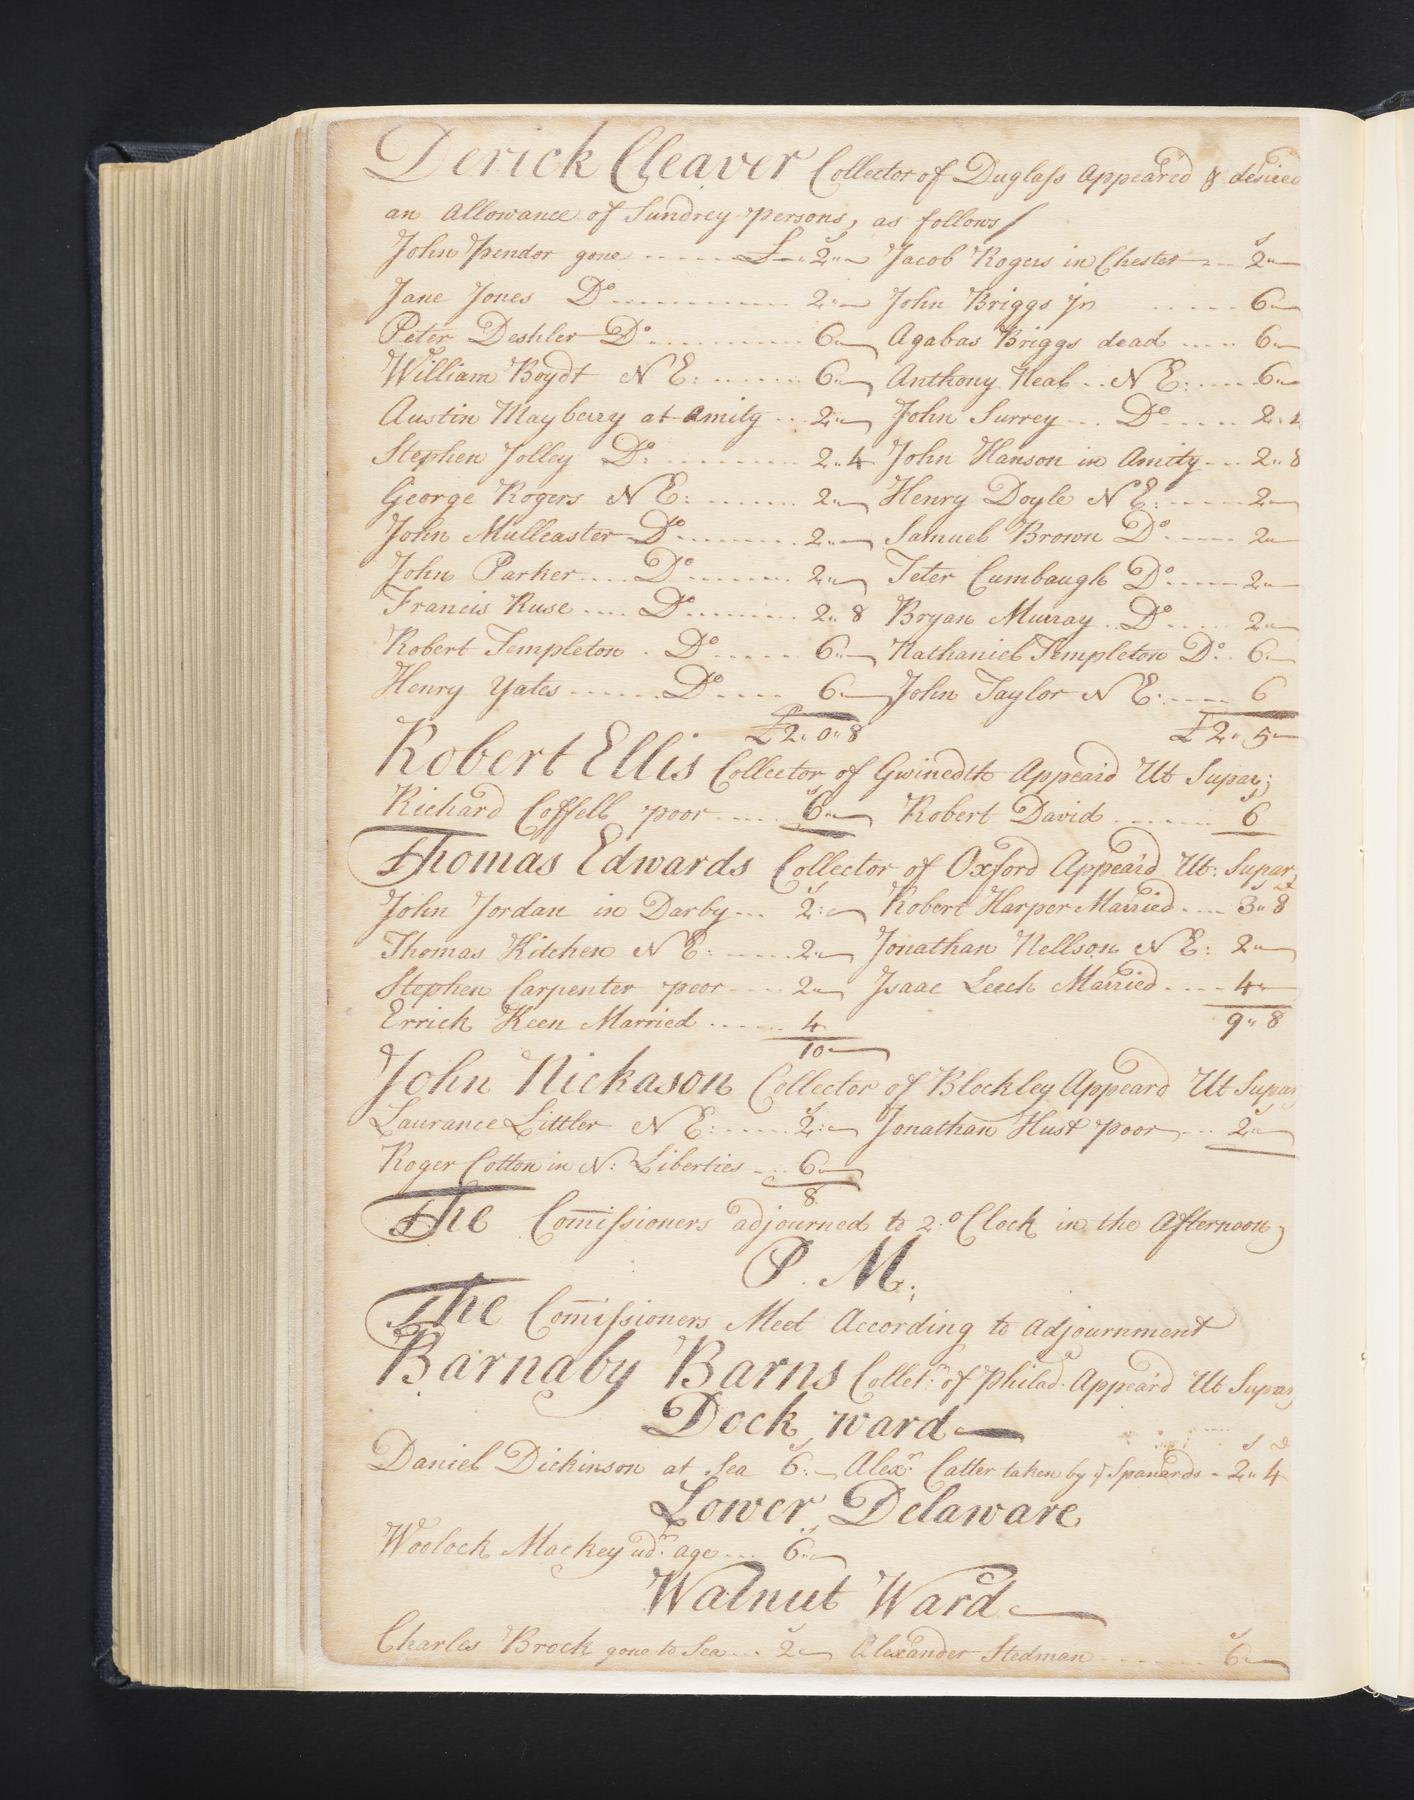 Derick Cleaver Collector of Duglass Appeared & desired
an Allowance of Sundrey persons, as follows/
John Pendor gone £ 2"— Jacob Rogers in Chester 2"—
Jane Jones Do 2"— John Briggs Jn 6"—
Peter Deshler Do 6"— Agabas Briggs dead 6"—
William Boydt N E: 6"— Anthony Neal N E: 6"—
Austin Mayberry at Amity 2"— John Surrey Do 2"4
Stephen Jolley Do: 2"4 John Hanson in Amity 2"8
George Rogers N E: 2"— Henry Doyle N E: 2"—
John Mullcaster Do 2"— Samuel Brown Do 2"—
John Parker Do 2"— Teter Cumbaugh Do 2"—
Francis Ruse Do 2"8 Bryan Murray Do 2"—
Robert Templeton Do 6"— Nathaniel Templeton Do 6"—
Henry Yates Do 6"— John Taylor N E: 6
£2"0"8 £2"5"—
Robert Ellis Collector of Gwinedth Appeard Ut Supar;
Richard Coffell poor 6"— Robert David 6
Thomas Edwards Collector of Oxford Appeard Ut: Supar
John Jordan in Darby 2:— Robert Harper Married 3"8
Thomas Kitchen N E: 2"— Jonathan Nellson N E: 2"—
Stephen Carpenter poor 2"— Isaac Leech Married 4"—
Errick Keen Married 4 9"8
10—
John Nickason Collector of Blockley Appeard Ut Supar
Laurance Littler N E: 2:— Jonathan Hust poor 2"—
Roger Cotton in N: Liberties 6—
8
The Com̄issioners adjourned to 2: oClock in the Afternoon;
P. M.;
The Com̄issioners Meet According to adjournment
Barnaby Barns Collet.r of Philad.a Appeard Ut Supar
Dock ward—
s d
Daniel Dickinson at Sea 6:— Alex.r Catter taken by ye Spanards 2"4
Lower Delaware
Woolock Mackey ud.r age 6"—
Walnut Ward—
Charles Brock gone to Sea 2— Alexander Stedman 6"—